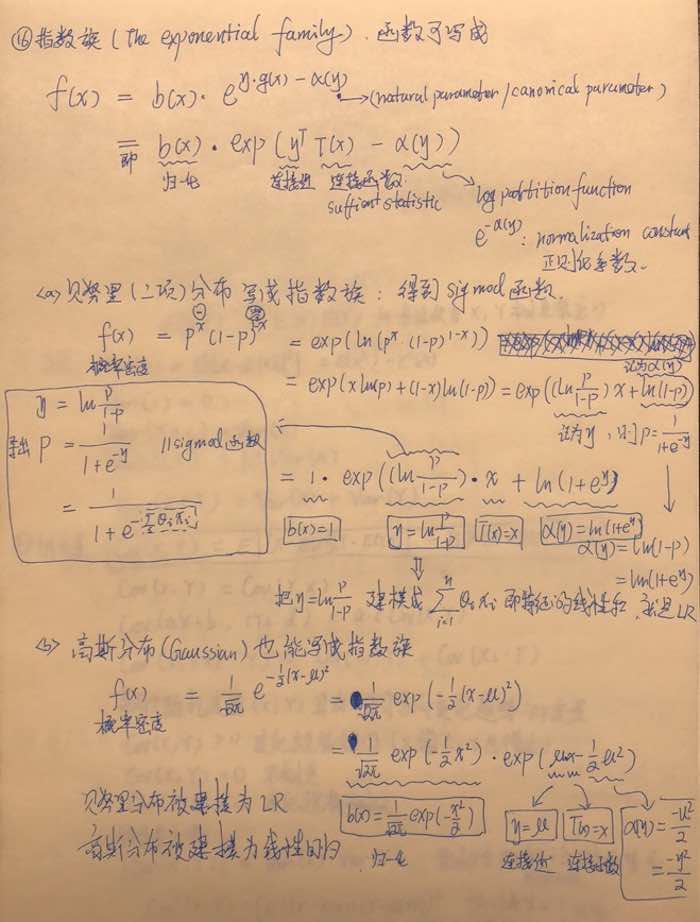 ⑯指数族 (the exponential family). 函数可写成
f(x) = b(x)· e^{y·g(x) - α(y)} → (natural parameter / canonical parameter)
= b(x)· exp (y^T T(x) - α(y))
即
归一化 连接性 连接函数.
suffient statistic
log partition function
e^{-α(y)}: normalization constant
正则化系数.
<a> 贝努里 (二项) 分布 写成指数族: 得到 sigmod 函数.
f(x) = p^x (1-p)^{1-x} = exp(ln(p^x · (1-p)^{1-x}))
概率密度
记为α(y)
= exp(x ln(p) + (1-x) ln(1-p)) = exp((ln p/(1-p)) x + ln(1-p))
记为y, 则 p = 1/(1+e^{-y})
y = ln p/(1-p)
导出 p = 1/(1+e^{-y}) //sigmod 函数
= 1/(1+e^{-Σθi xi})
= 1· exp((ln p/(1-p))· x + ln(1+e^y))
b(x)=1 y = ln p/(1-p) T(x)=x α(y)=ln(1+e^y)
α(y)=ln(1-p)
=ln(1+e^y)
把 y=ln p/(1-p) 建模成 Σ_{i=1}^{n} θi xi 即特征的线性和, 就是 LR
<b> 高斯分布 (Gaussian) 也能写成指数族
f(x) = 1/√2π e^{-1/2(x-u)²} = 1/√2π exp(-1/2 (x-u)²)
概率密度
= 1/√2π exp(-1/2 x²) · exp(ux - 1/2 u²)
贝努里分布被建模为 LR
高斯分布被建模为线性回归
b(x)=1/√2π exp(-x²/2) y=u T(x)=x α(y) = -u²/2
= -y²/2
归一化 连接性 连接函数